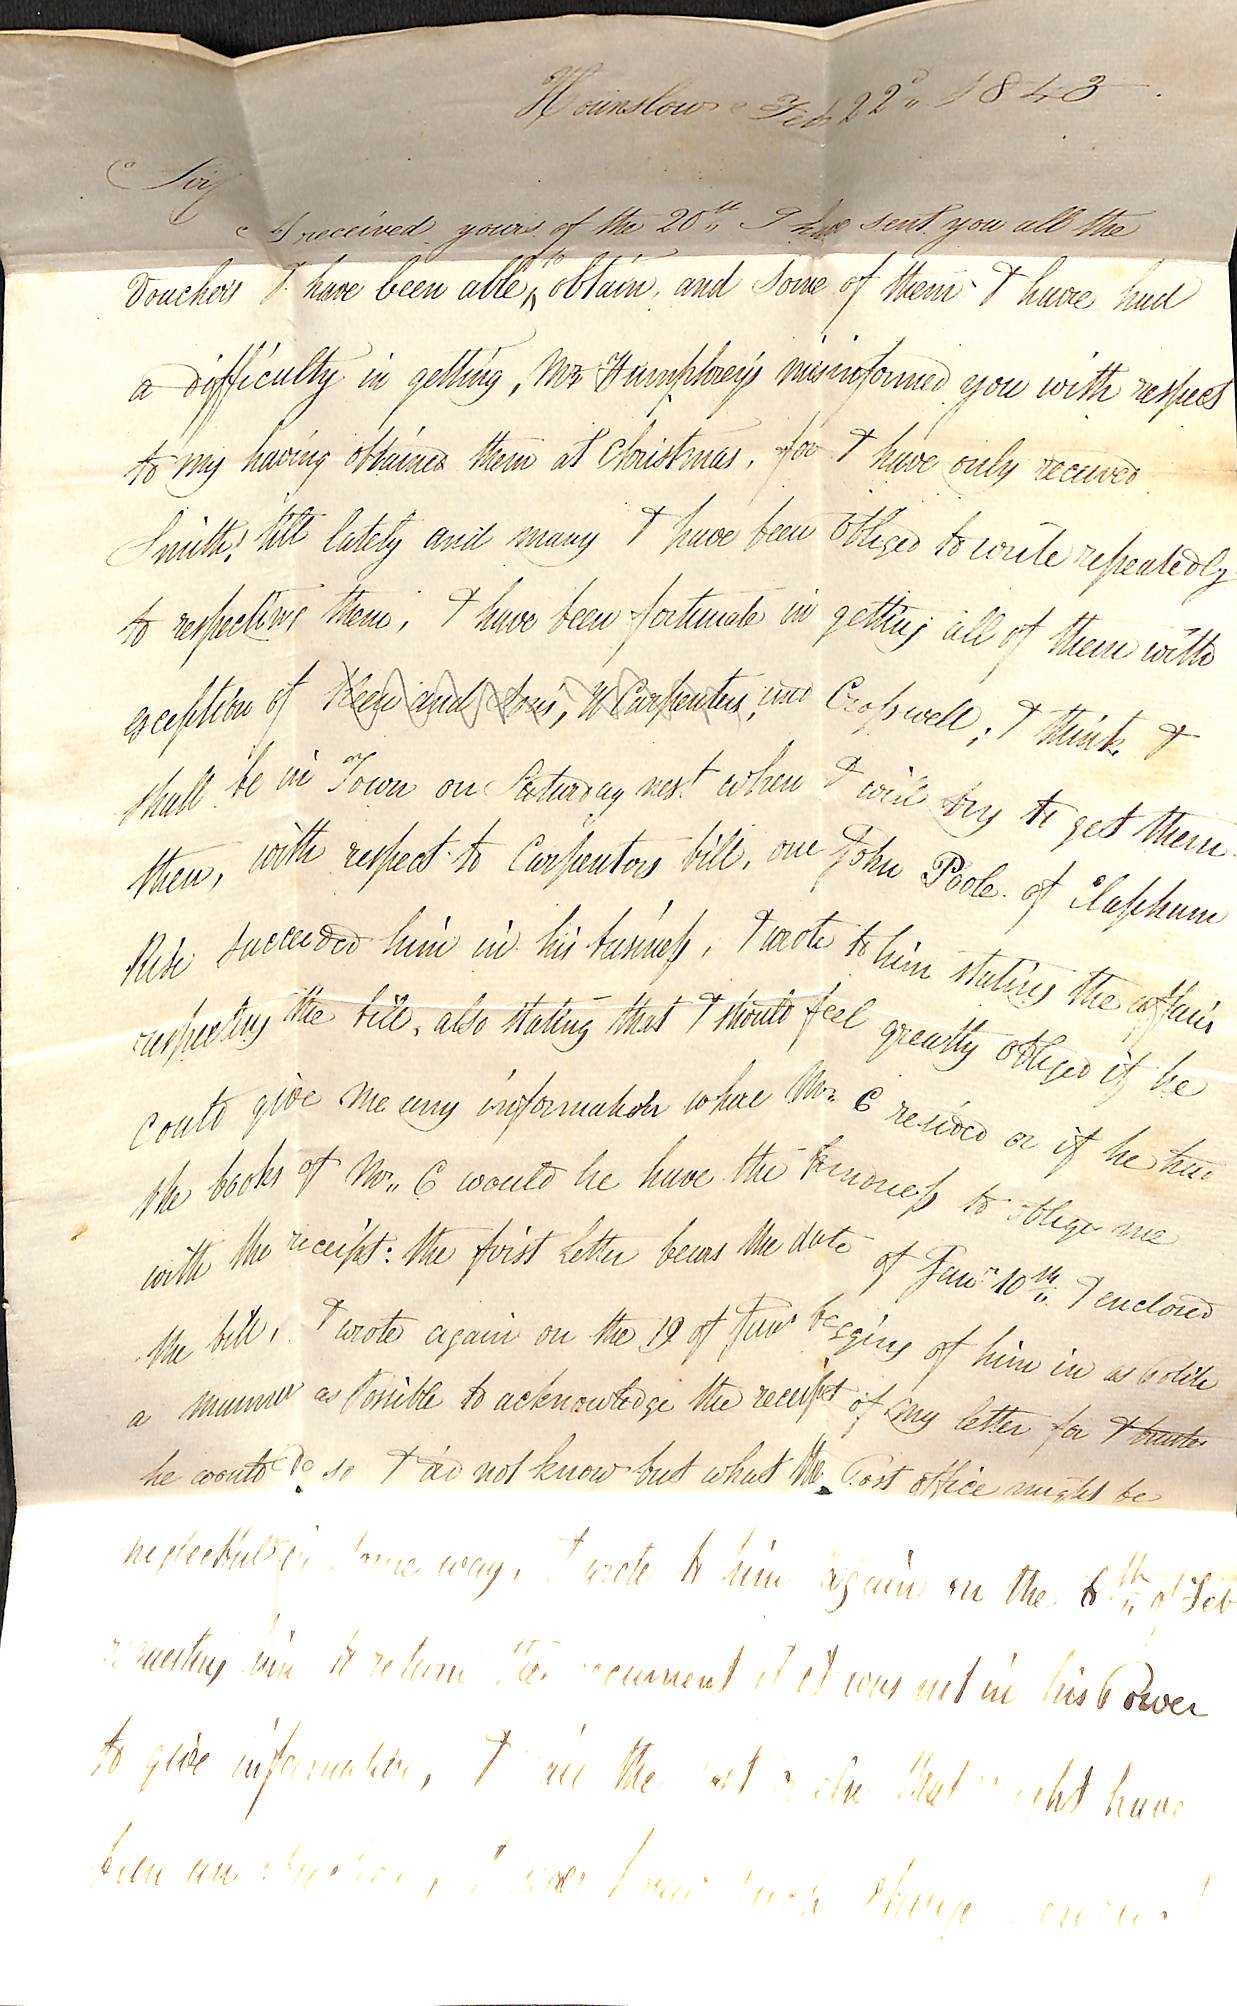 Hounslow Feb 22d 1843
Sir
I received yours of the 20th I have sent you all the
Vouchers I have been able to obtain, and some of them I have had
a difficulty in getting, Mr Humphreys misinformed you with respect
to my having obtained them at Christmas, for I have only received
Smiths till lately and many I have been obliged to write repeatedly
to respecting them, I have been fortunate in getting all of them with
exception of Keen and Sons, W Carpenters, and Cropwell; I think I
shall be in Town on Saturday next when I will try to get them
then, with respect to Carpentors bill, one John Poole of Clapham
Rise succeeded him in his business, I wrote to him stating the affair
respecting the bill, also stating that I should feel greatly obliged if he
could give me any information where Mr C resided or if he had
the books of Mr C would he have the kindness to oblige me
with the receipt: the first letter bears the date of Jany 10th I enclosed
the bill, I wrote again on the 19 of Jany begging of him in as Polite
a manner as Possible to acknowledge the receipt of my letter for I trusted
he would do so I did not know but what the Post office might be
neglectful in some way, I wrote to him again on the 6th of Feb
requesting him to return the document if it was not in his Power
to give information, I the that might have
been an